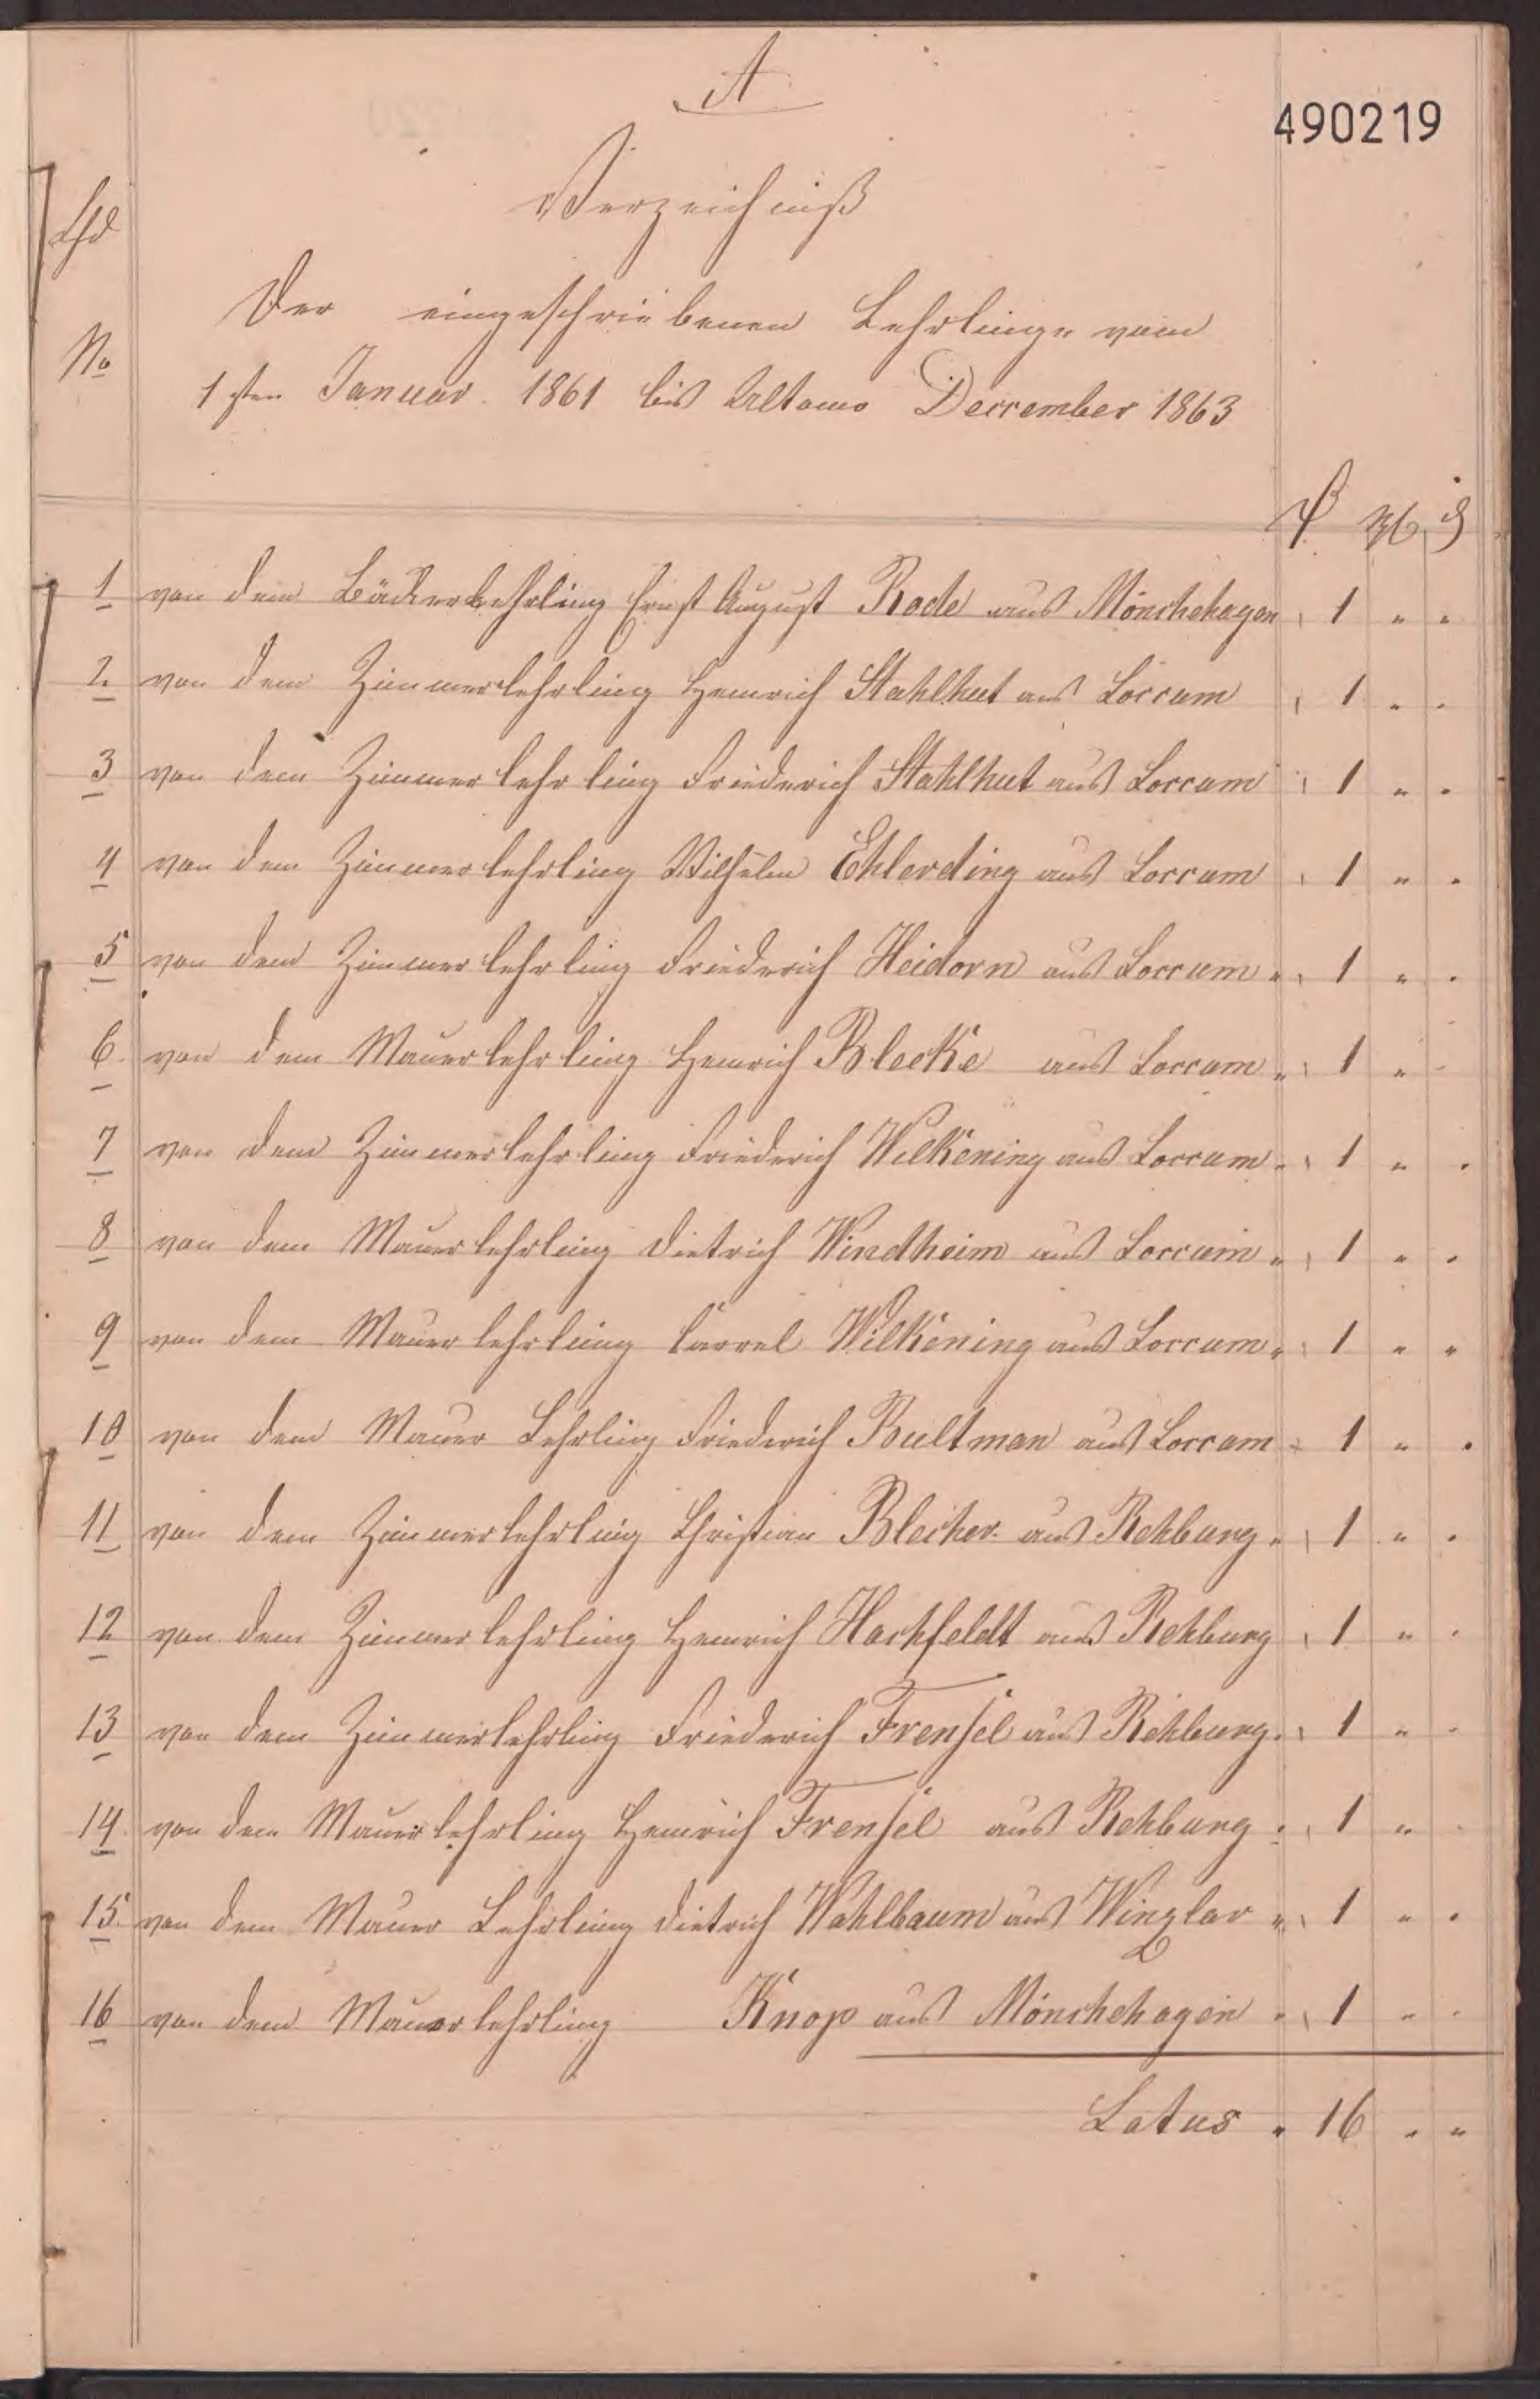 A
490219
Verzeichniß
Lfd
Der eingeschriebenen Lehrlinge vom
No
1sten Januar. 1861 bis Ultomo Decrember 1863
1 von dem Bäckerlehrling Ernst August Rode aus Mönchehagen 1 " "
2. von dem Zimmerlehrling Heinrich Stahlhut aus Loccum 1 " "
3 von dem Zimmerlehrling Friederich Stahlhut aus Loccum 1 " "
4 von dem Zimmerlehrling Wilhelm Ehlerding aus Loccum 1 " "
5 von dem Zimmerlehrling Friederich Heidorn aus Loccum " 1 " "
6. von dem Mauerlehrling Heinrich Bleeke aus Loccum " 1 " "
7 von dem Zimmerlehrling Friederich Wilkening aus Loccum " 1 " "
8 von dem Mauerlehrling Dietrich Windheim aus Loccum " 1 " "
9 von dem Mauerlehrling Carrel Wilkening aus Loccum " 1 " "
10 von dem Mauer Lehrling Friederich Bultman aus Loccum " 1 " "
11 von dem Zimmerlehrling Christian Bleicher aus Rehburg " 1 " "
12 von dem Zimmerlehrling Heinrich Hachfeldt aus Rehburg 1 " "
13 von dem Zimmerlehrling Friederich Frensel aus Rehburg " 1 " "
14 von dem Mauerlehrling Heinrich Frensel aus Rehburg " 1 " "
15. von dem Mauer Lehrling Dietrich Wahlbaum aus Winzlar " 1 " "
16 von dem Mauerlehrling Knop aus Mönchehagen " 1 " "
Latus " 16 " "